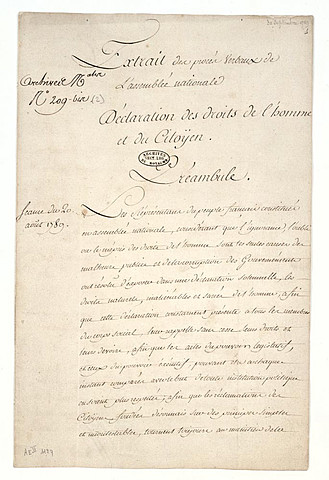 Extrait des procès Verbaux de
L'assemblée nationale
Archives N<sup>ales</sup>
N° 209-bis (2)
Déclaration des droits de l'homme
et du Citoyen.
ARCHIVES
DU ROYAUME
Préambule.
Séance du 20
août 1789.
Les Représentans du peuple françois constitués
en assemblée nationale, considérant que l'ignorance, l'oubli
ou le mépris des droits de l'homme sont les seules causes des
malheurs publics et de la corruption des Gouvernemens
ont résolu d'exposer dans une déclaration solemnelle, les
droits naturels, inaliénables et sacrés de l'homme, afin
que cette déclaration constamment présente à tous les membres
du corps social, leur rappelle sans cesse leurs droits et
leurs devoirs, afin que les actes du pouvoir législatif,
et ceux du pouvoir exécutif, pouvant être à chaque
instant comparés avec le but de toute institution politique
en soient plus respectés; afin que les réclamations des
Citoyens fondées désormais sur des principes simples
et incontestables, tournent toujours au maintien de la
AE II 1129